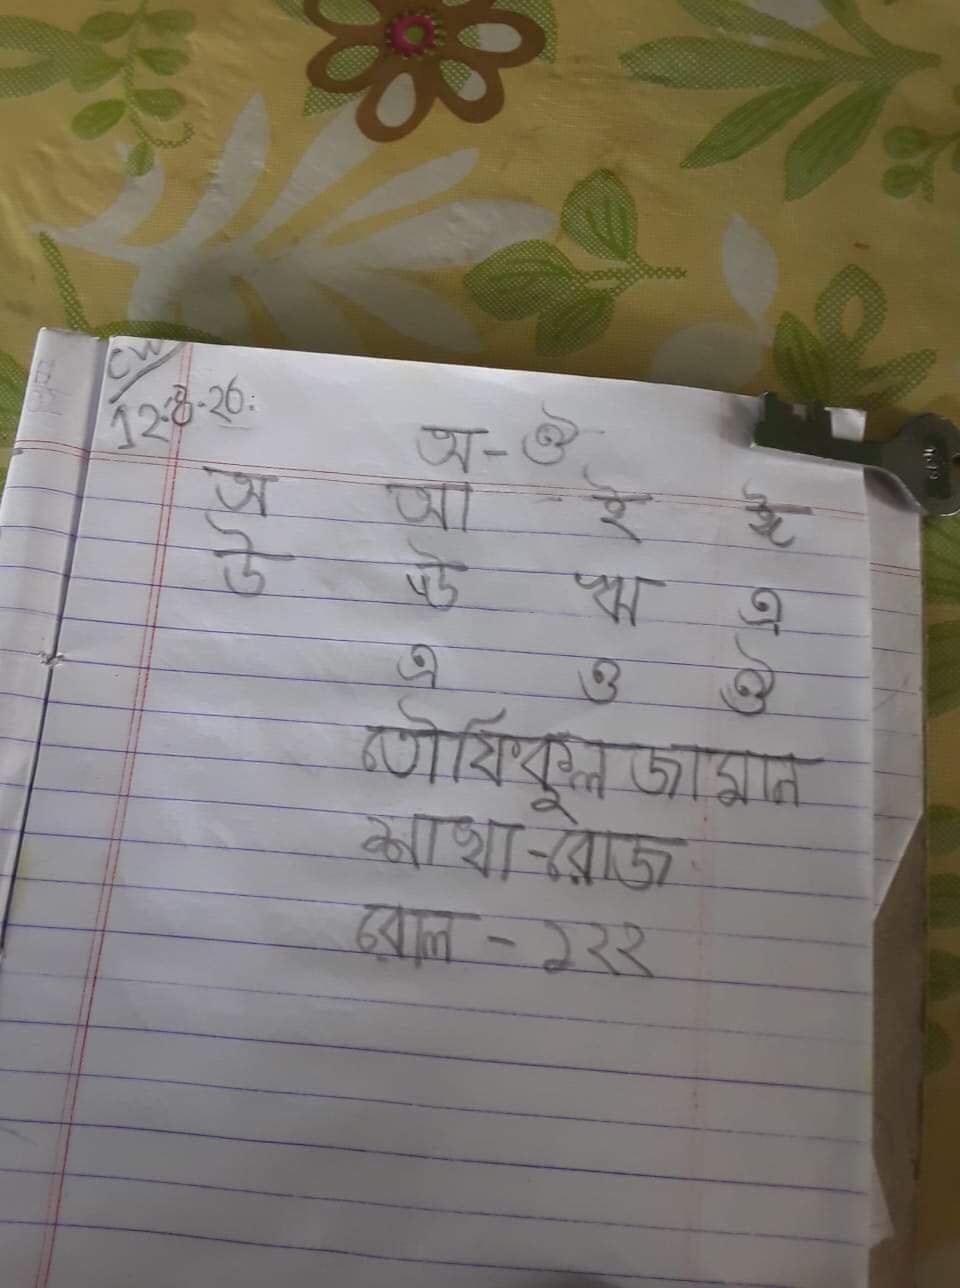 CW
12.8.26.
অ-ঔ
অ আ ই ঈ
উ ঊ ঋ এ
ঐ ও ঔ
তৌফিকুল জামান
শাখা-রোজ
রোল - ১২২